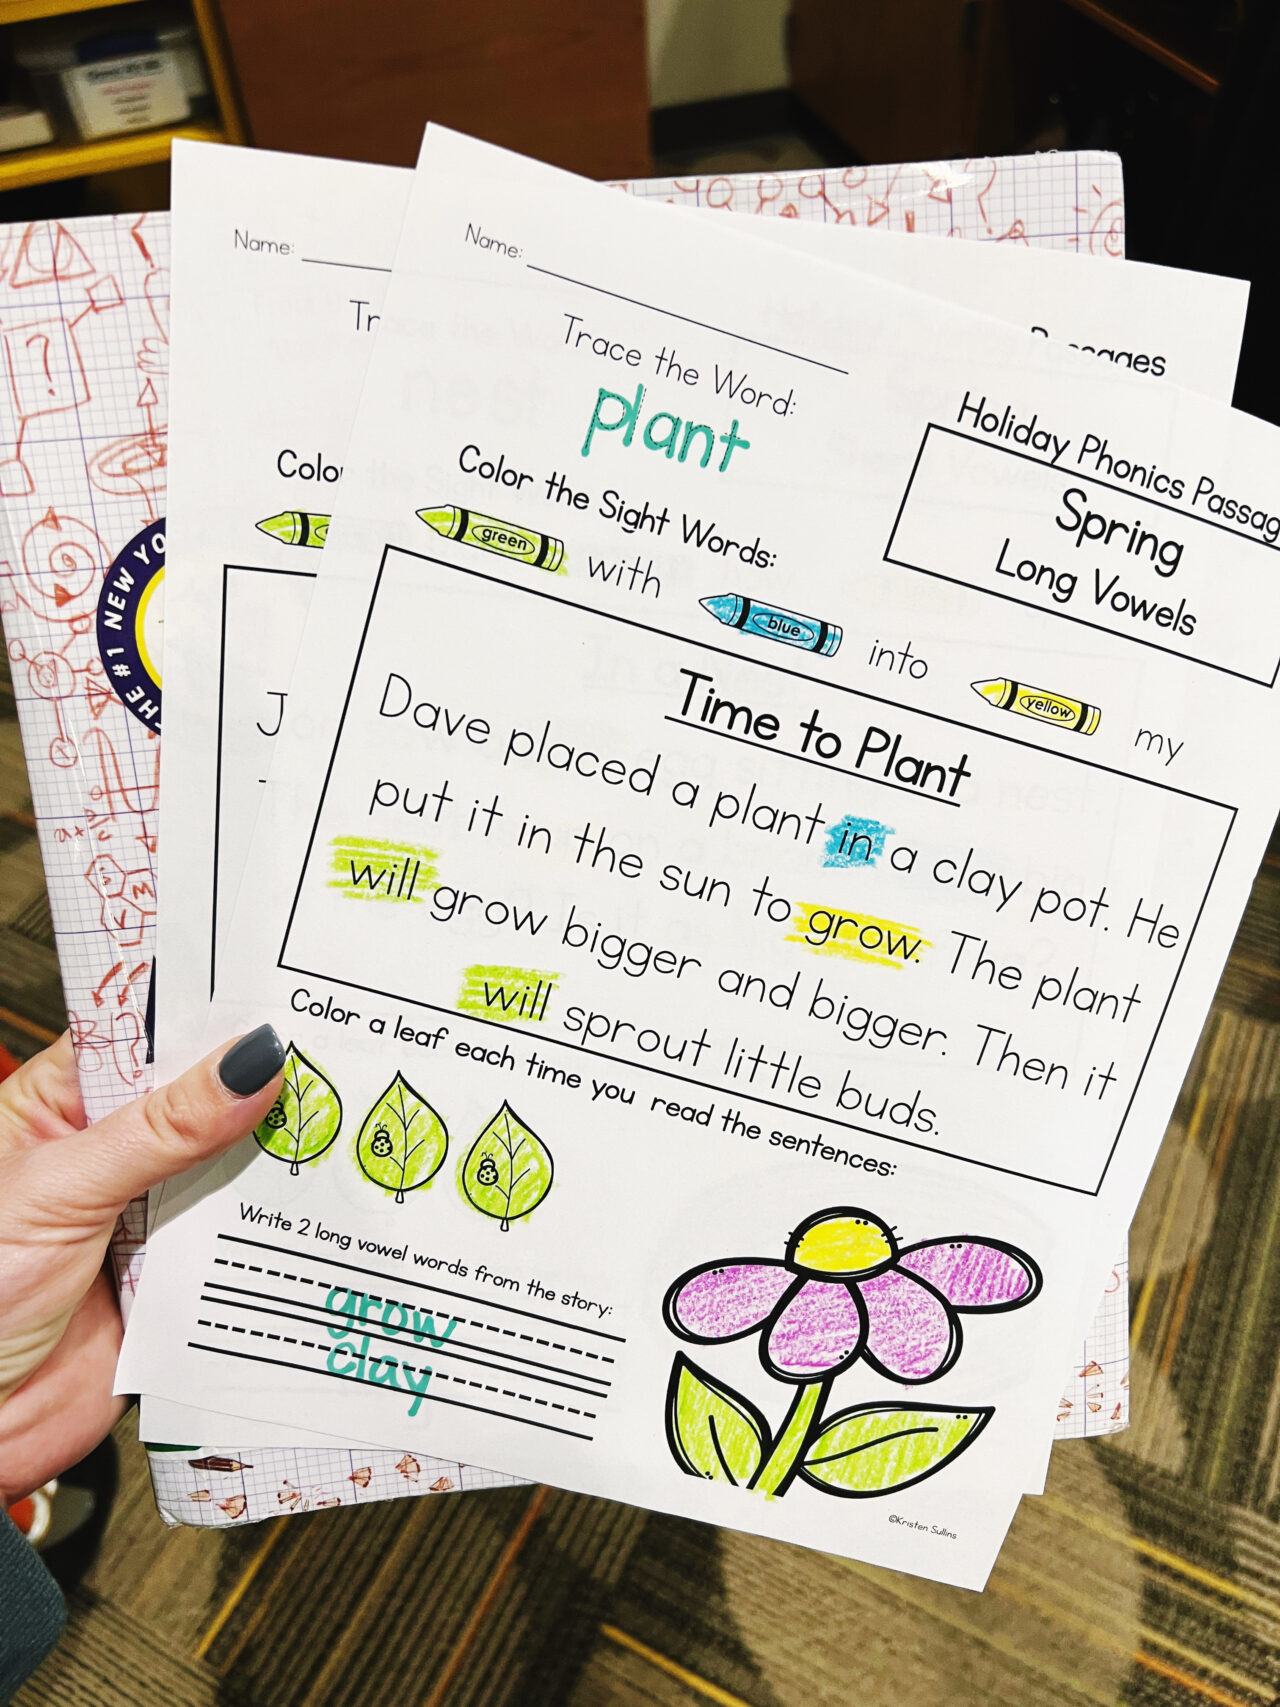 Name:
Tr
Colo
J
Name:
Trace the Word:
plant
Color the Sight Words:
green with blue into yellow my
Passages
Holiday Phonics Passag
Spring
Long Vowels
Time to Plant
Dave placed a plant in a clay pot. He
put it in the sun to grow. The plant
will grow bigger and bigger. Then it
will sprout little buds.
Color a leaf each time you read the sentences:
Write 2 long vowel words from the story:
grow
clay
©Kristen Sullins
THE #1 NEW YO